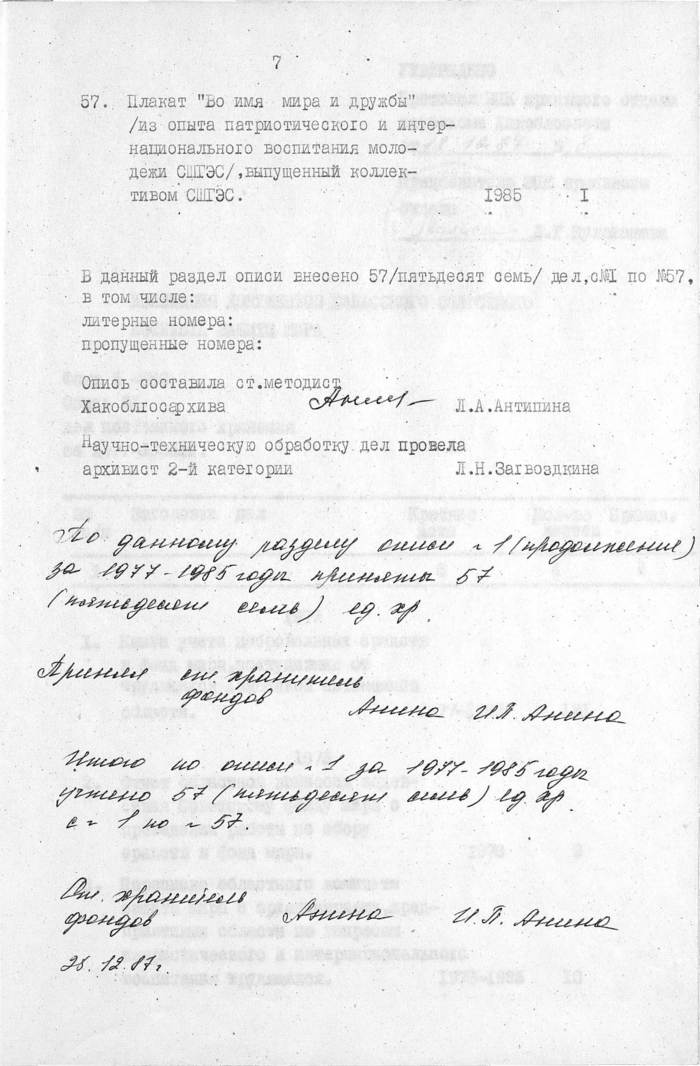 7
57. Плакат "Во имя мира и дружбы"
/из опыта патриотического и интер-
национального воспитания моло-
дежи СШГЭС/,выпущенный коллек-
тивом СШГЭС. 1985 I
В данный раздел описи внесено 57/пятьдесят семь/ дел,с№I по №57,
в том числе:
литерные номера:
пропущенные номера:
Опись составила ст.методист
Хакоблгосархива Л.А.Антипина
Научно-техническую обработку дел провела
архивист 2-й категории Л.Н.Загвоздкина
По данному разделу описи № 1 (продолжение)
за 1977-1985 годы приняты 57
(пятьдесят семь) ед. хр.
Принял ст. хранитель
фондов Анина И.П. Анина
Итого по описи № 1 за 1977-1985 годы
учтено 57 (пятьдесят семь) ед. хр.
с № 1 по № 57.
Ст. хранитель
фондов Анина И.П. Анина
25.12.87г.